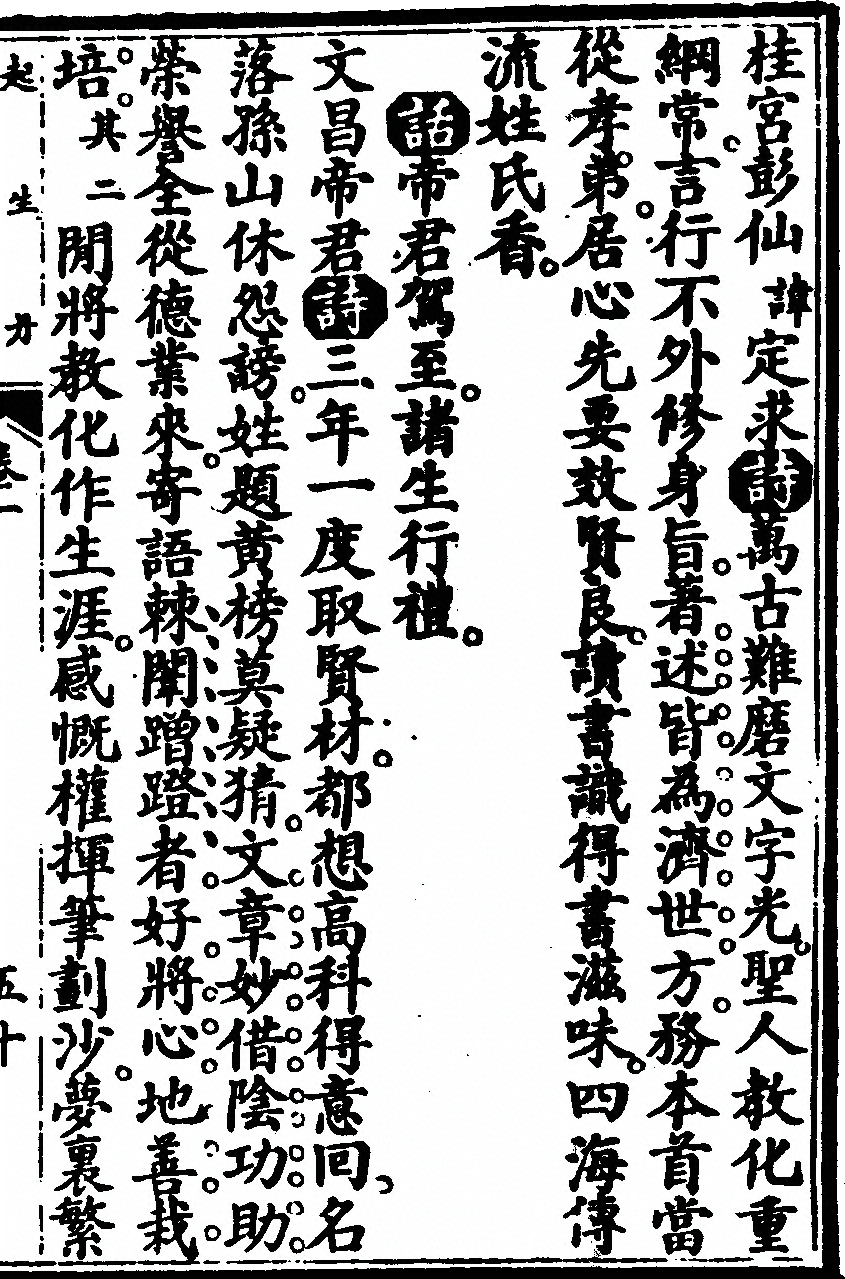 桂宮彭仙諱定求詩萬古難磨文字光聖人教化重
綱常言行不外修身旨著述皆為濟世方務本首當
從孝弟居心先要效賢良讀書識得書滋味四海傳
流姓氏香
詔帝君駕至諸生行禮
文昌帝君詩三年一度取賢材都想高科得意回名
落孫山休怨謗姓題黃榜莫疑猜文章妙借陰功助
榮譽全從德業來寄語棘闈蹭蹬者好將心地善栽
培其二閒將教化作生涯感慨權揮筆劃沙夢裏繁
起生
卷二
五十